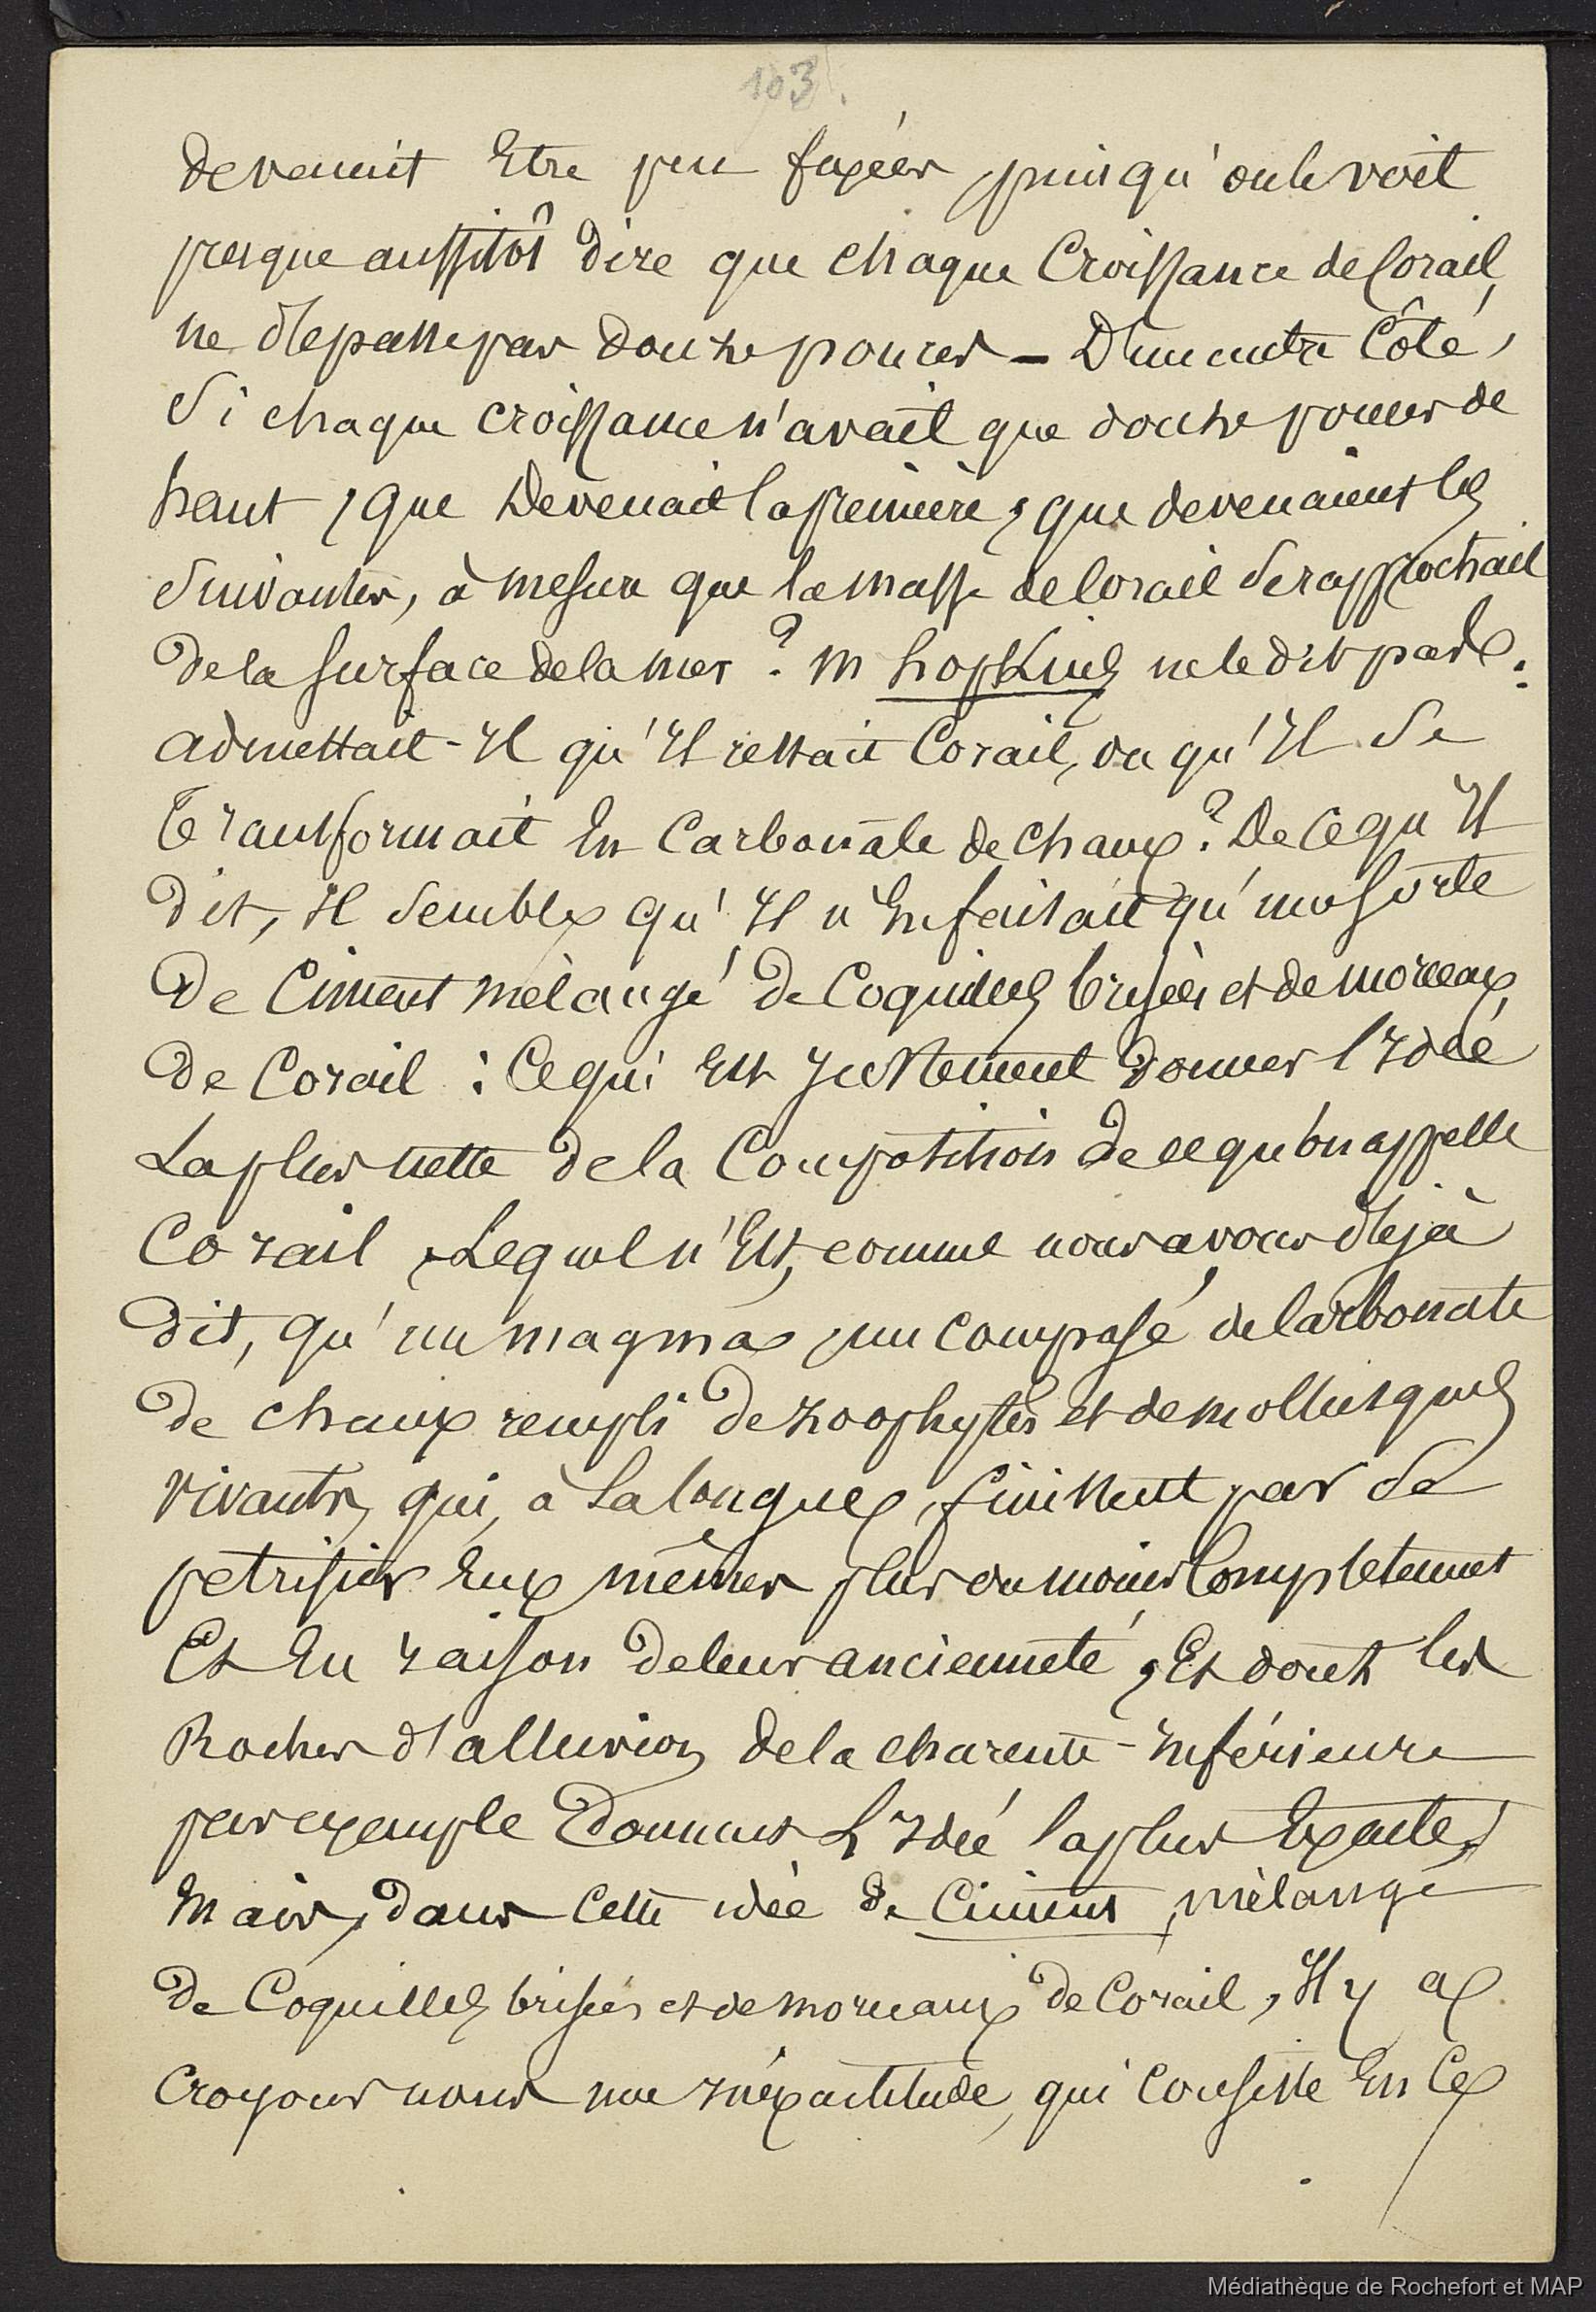 103.
devenait Etre peu fixées, puisqu'on le voit
presque aussitôt dire que chaque Croissance de Corail,
ne dépasse pas douze pouces – D'un autre Côté,
Si chaque croissance n'avait que douze pouces de
haut, que devenait la première, que devenaient les
Suivantes, à mesure que la masse de Corail se rapprochait
de la surface de la mer ? M hopkins ne le dit pas.
admettait-Il qu'Il restait Corail, ou qu'Il se
Transformait En Carbonate de chaux ? De ce qu'Il
dit, Il semble qu'Il n'En faisait qu'une sorte
de Ciment mélangé de Coquilles brisées et de morceaux
de Corail : Ce qui Est Justement donner l'Idée
La plus nette de la Composition de ce qu'on appelle
Corail, Lequel n'Est, comme nous avons déjà
dit, qu'un magma, un composé de Carbonate
de chaux rempli de zoophytes et de mollusques
vivants, qui, à la longue, finissent par se
petrifier Eux mêmes plus ou moins Completement
Et En raison de leur ancienneté, Et dont les
Rochers d'alluvion de la charente-Inférieure
par exemple donnent L'Idée la plus Exacte,
Mais, dans Cette idée de Ciment, mélangé
de Coquilles brisées et de morceaux de Corail, Il y a
Croyons nous une Inéxactitude, qui Consiste En Ce
Médiathèque de Rochefort et MAP